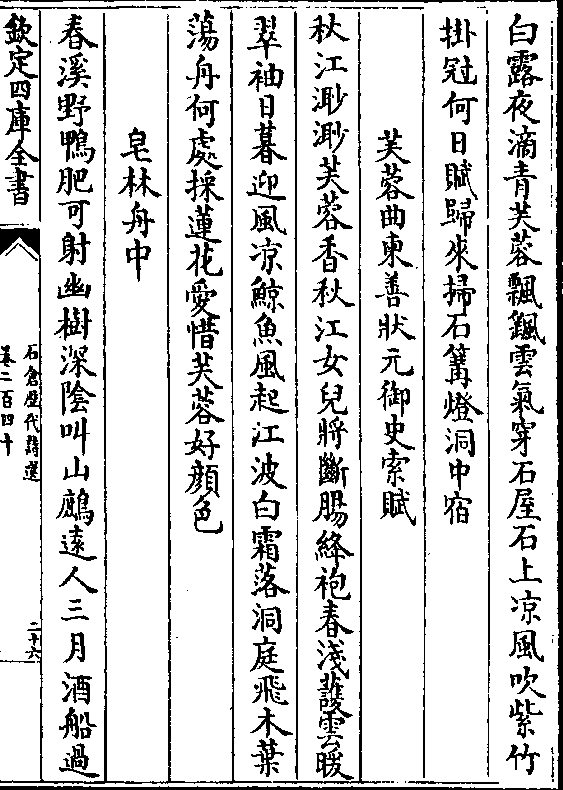 白露夜滴青芙蓉飄飄雲氣穿石屋石上凉風吹紫竹
掛冠何日賦歸來掃石篝燈洞中宿
芙蓉曲柬善狀元御史索賦
秋江渺渺芙蓉香秋江女兒將斷腸絳袍春淺護雲暖
翠袖日暮迎風凉鯨魚風起江波白霜落洞庭飛木葉
蕩舟何處採蓮花愛惜芙蓉好顔色
皂林舟中
春溪野鴨肥可射幽樹深陰叫山鷓遠人三月酒船過
欽定四庫全書
石倉歷代詩選
卷二百四十
二十六